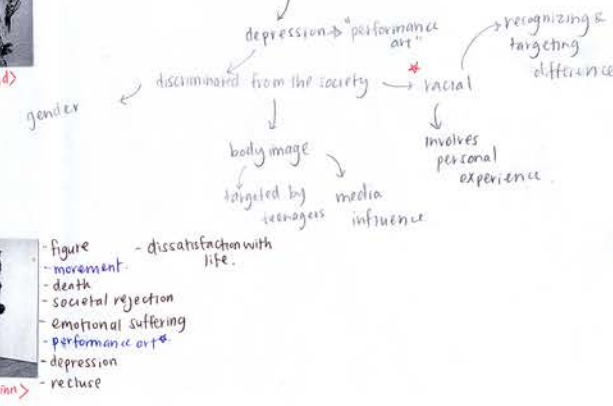 depression → "performance
art"
recognizing &
targeting
difference
d>
discriminated from the society → racial
gender
body image
involves
personal
experience.
targeted by
teenagers
media
influence
- figure
- dissatisfaction with
life.
- movement.
- death
- societal rejection
- emotional suffering
- performance art*
- depression
- recluse
inn>